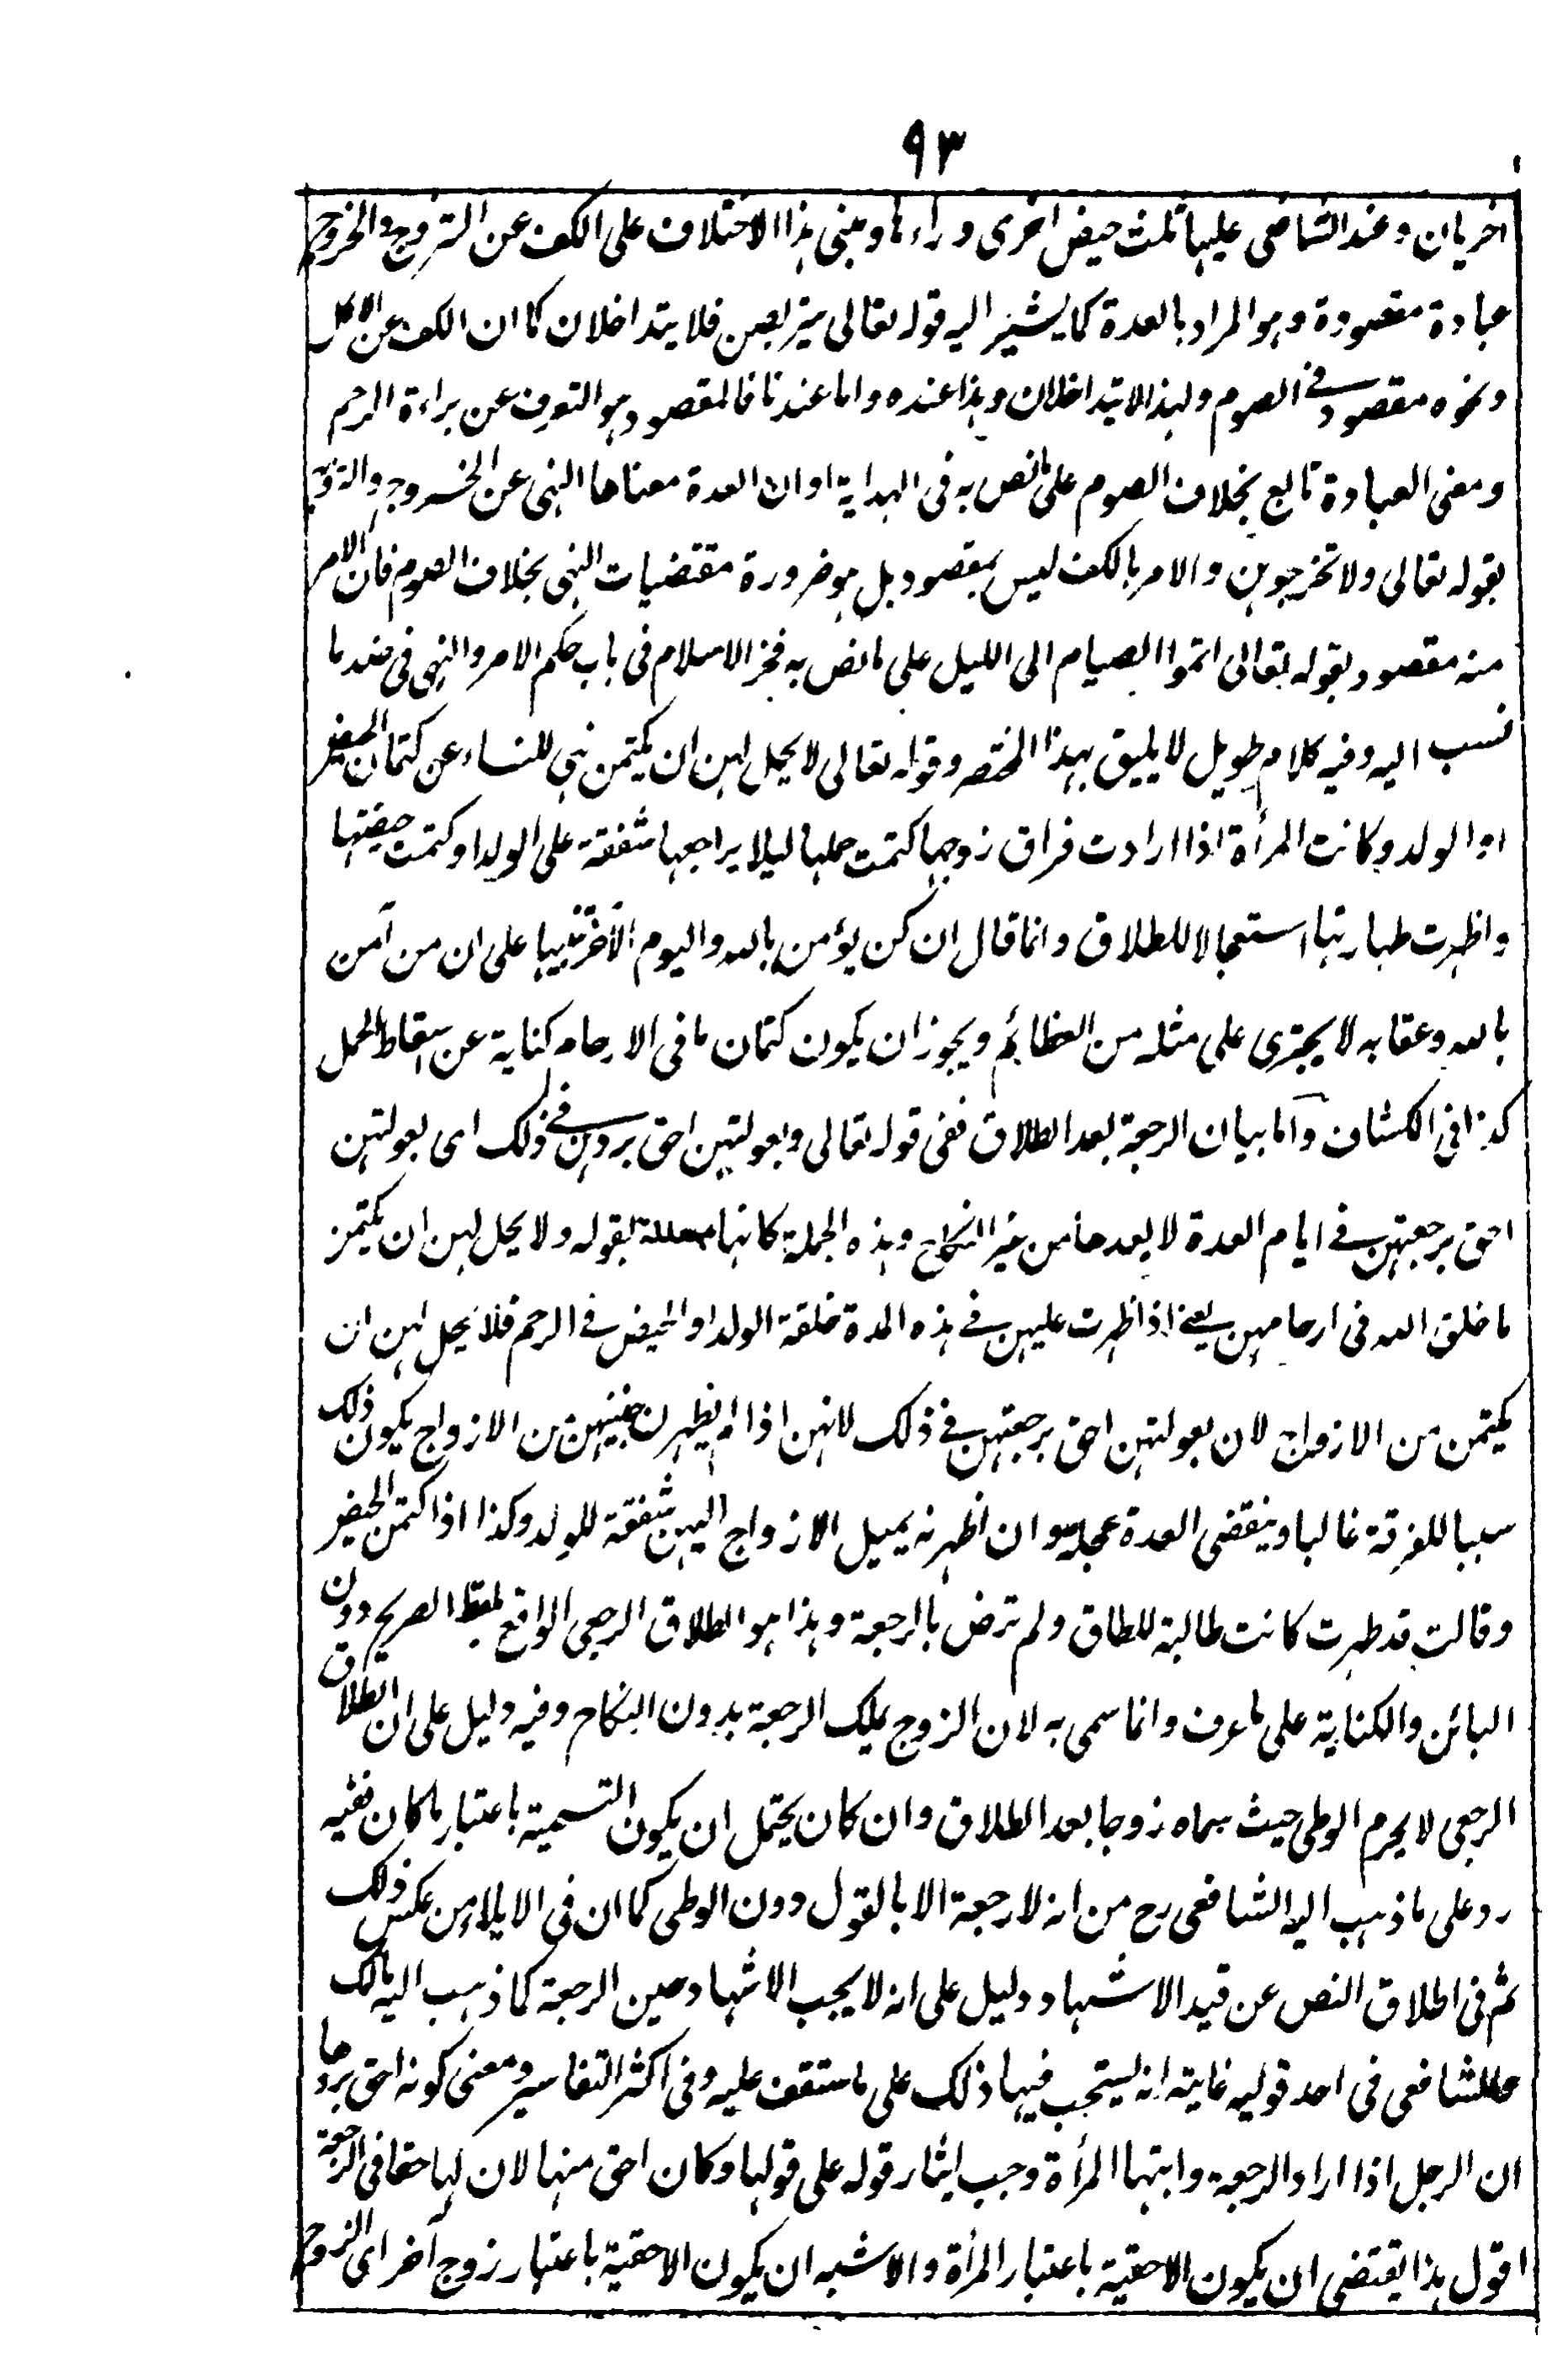 ٩٣
اخريان وعند الشافعي عليها ثلث حيض اخرى وراءها ومبنى هذا الاختلاف على الكف عن التزوج والخروج
عبادة مقصودة وهو المراد بالعدة كما يشير اليه قوله تعالى يتربصن فلا يتداخلان كما ان الكف عن الاكل
ونحوه مقصود في الصوم ولهذا لا يتداخلان وهذا عنده واما عندنا فالمقصود هو التعرف عن براءة الرحم
ومعنى العبادة تابع بخلاف الصوم على ما نص به في الهداية او ان العدة معناها النهي عن الخروج والتزوج
بقوله تعالى ولا تخرجوهن والامر بالكف ليس بمقصود بل هو ضرورة مقتضيات النهي بخلاف الصوم فان الامر
منه مقصود بقوله تعالى اتموا الصيام الى الليل على ما نص به فخر الاسلام في باب حكم الامر والنهي في ضد ما
نسب اليه وفيه كلام طويل لا يليق بهذا المختصر وقوله تعالى لا يحل لهن ان يكتمن نهي للنساء عن كتمان الحيض
او الولد وكانت المرأة اذا ارادت فراق زوجها كتمت حملها ليلا يراجعها شفقة على الولد او كتمت حيضتها
واظهرت طهارتها استعجالا للطلاق وانما قال ان كن يؤمن بالله واليوم الآخر تنبيها على ان من آمن
بالله وعقابه لا يجترى على مثله من العظائم ويجوز ان يكون كتمان ما في الارحام كناية عن اسقاط الحمل
كذا في الكشاف واما بيان الرجعة بعد الطلاق ففي قوله تعالى وبعولتهن احق بردهن في ذلك اى بعولتهن
احق برجعتهن في ايام العدة لا بعدها من غير النكاح وهذه الجملة كانها معللة لقوله ولا يحل لهن ان يكتمن
ما خلق الله في ارحامهن يعني اذا ظهرت عليهن في هذه المدة خلقة الولد او الحيض في الرحم فلا يحل لهن ان
يكتمن من الازواج لان بعولتهن احق برجعتهن في ذلك لانهن اذا لم يظهرن جنينهن من الازواج يكون ذلك
سببا للفرقة غالبا وينقضى العدة عجلة وان اظهرنه يميل الازواج اليهن شفقة للولد وكذا اذا كتمن الحيض
وقالت قد طهرت كانت طالبة للطلاق ولم ترض بالرجعة وهذا هو الطلاق الرجعي الواقع بلفظ الصريح دون
البائن والكناية على ما عرف وانما سمى به لان الزوج يملك الرجعة بدون النكاح وفيه دليل على ان الطلاق
الرجعي لا يحرم الوطى حيث سماه زوجا بعد الطلاق وان كان يحتمل ان يكون التسمية باعتبار ما كان ففيه
رد على ما ذهب اليه الشافعي رح من انه لا رجعة الا بالقول دون الوطى كما ان في الايلاء من عكس ذلك
ثم في اطلاق النص عن قيد الاشهاد دليل على انه لا يجب الاشهاد حين الرجعة كما ذهب اليه مالك
والشافعي في احد قوليه غايته انه يستحب فيها ذلك على ما ستقف عليه وفي اكثر التفاسير ومعنى كونه احق بردها
ان الرجل اذا اراد الرجعة وابتها المرأة وجب ايثار قوله على قولها وكان احق منها لان لها حقا في الرجعة
اقول هذا يقتضي ان يكون الاحقية باعتبار المرأة والاشبه ان يكون الاحقية باعتبار زوج آخر اى الزوج